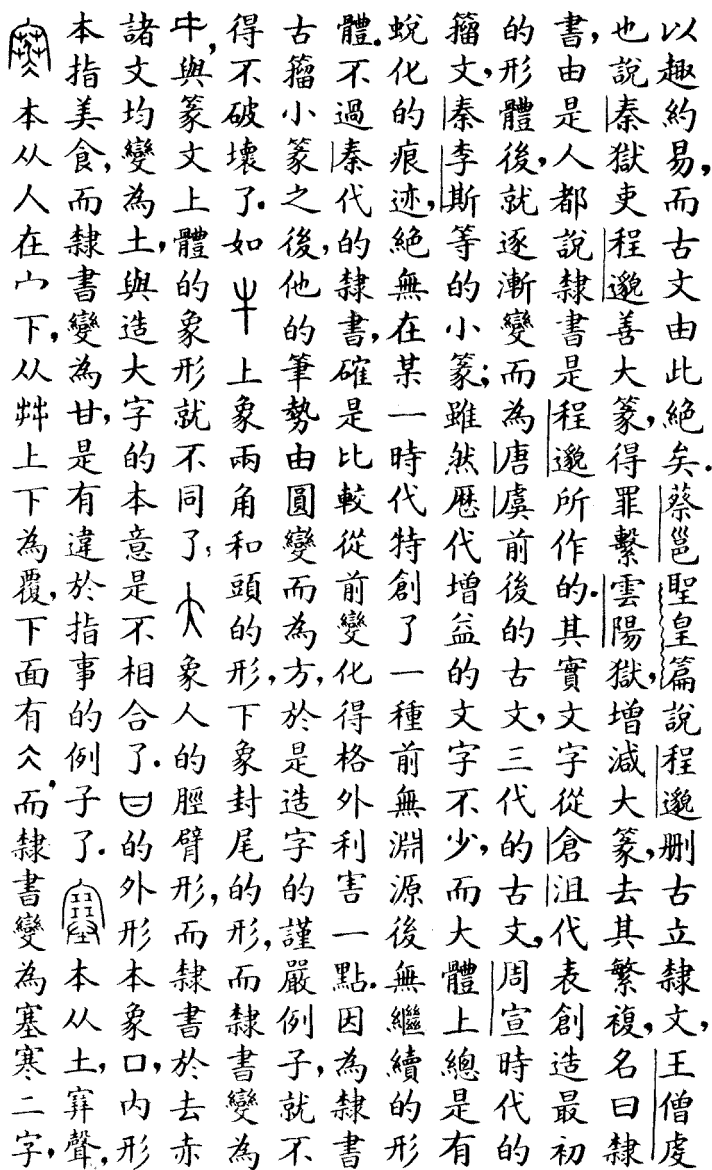 以趣約易,而古文由此絕矣.蔡邕聖皇篇說程邈刪古立隸文,王僧虔
也說秦獄吏程邈善大篆,得罪繫雲陽獄,增減大篆,去其繁複,名曰隸
書,由是人都說隸書是程邈所作的.其實文字從倉沮代表創造最初
的形體後,就逐漸變而為唐虞前後的古文,三代的古文,周宣時代的
籀文,秦李斯等的小篆;雖然歷代增益的文字不少,而大體上總是有
蛻化的痕迹,絕無在某一時代特創了一種前無淵源後無繼續的形
體.不過秦代的隸書,確是比較從前變化得格外利害一點.因為隸書
古籀小篆之後,他的筆勢由圓變而為方,於是造字的謹嚴例子,就不
得不破壞了.如上象兩角和頭的形,下象封尾的形,而隸書變為
牛,與篆文上體的象形就不同了;象人的脛臂形,而隸書於去赤
諸文均變為土,與造大字的本意是不相合了.的外形本象口,內形
本指美食,而隸書變為甘,是有違於指事的例子了.本从土,𡨄聲,
本从人在宀下,从茻上下為覆,下面有仌,而隸書變為塞寒二字,